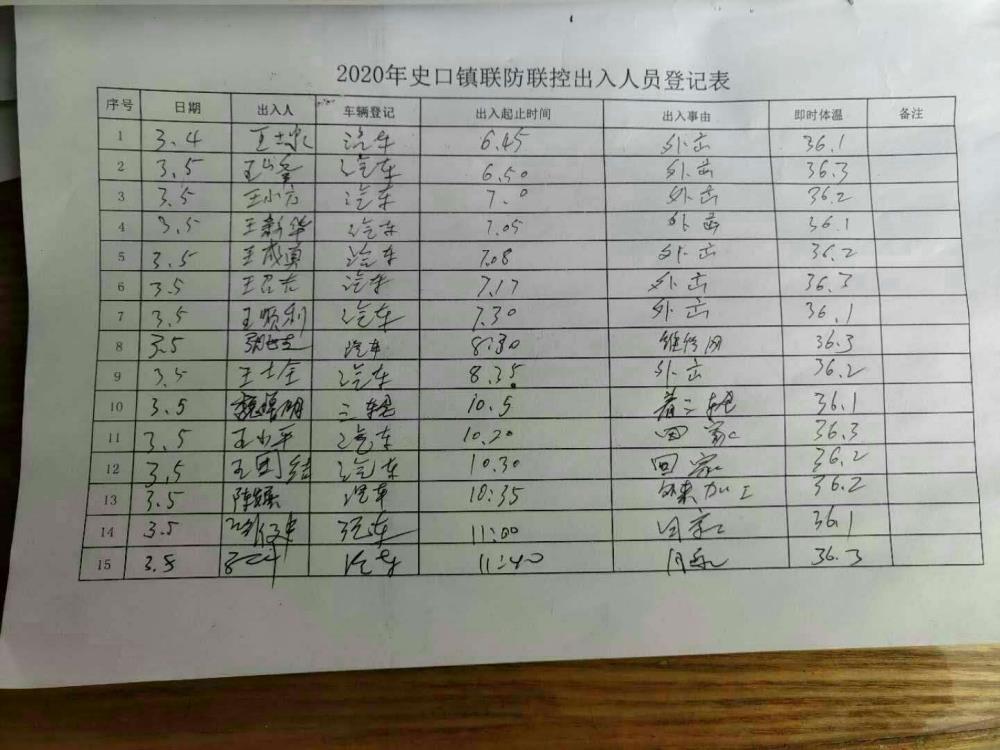 2020年史口镇联防联控出入人员登记表
序号 日期 出入人 车辆登记 出入起止时间 出入事由 即时体温 备注
1 3.4 汽车 6.45 外出 36.1
2 3.5 汽车 6.50 外出 36.3
3 3.5 王小方 汽车 7.0 外出 36.2
4 3.5 王新华 汽车 7.05 外出 36.1
5 3.5 王成勇 汽车 7.08 外出 36.2
6 3.5 汽车 7.17 外出 36.3
7 3.5 王顺利 汽车 7.30 外出 36.1
8 3.5 汽车 8:30 36.3
9 3.5 汽车 8.35 外出 36.2
10 3.5 三轮 10.5 36.1
11 3.5 王小平 汽车 10.20 回家 36.3
12 3.5 王团结 汽车 10.30 回家 36.2
13 3.5 汽车 10:35 加工 36.2
14 3.5 汽车 11:00 回家 36.1
15 3.5 汽车 11:40 回家 36.3